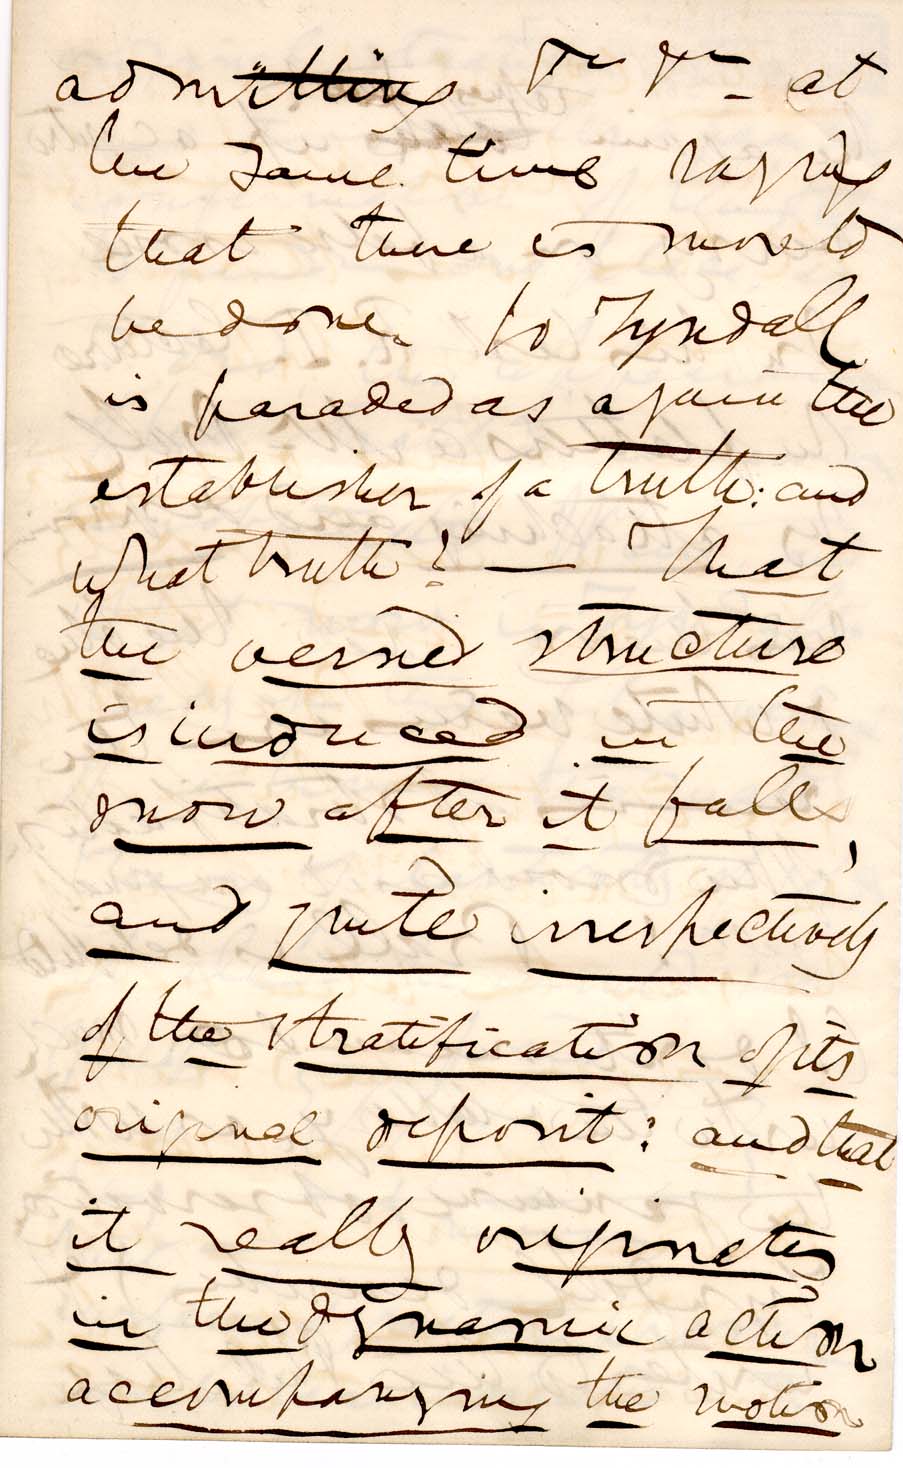 admitting &c &c – at
the same time saying
that there is more to
be done. So Tyndall
is paraded as again the
establisher of a truth: and
what truth? — That
the veined structure
is induced in the
snow after it falls,
and quite irrespectively
of the stratification of its
original deposit: and that
it really originates
in the dynamic action
accompanying the motion